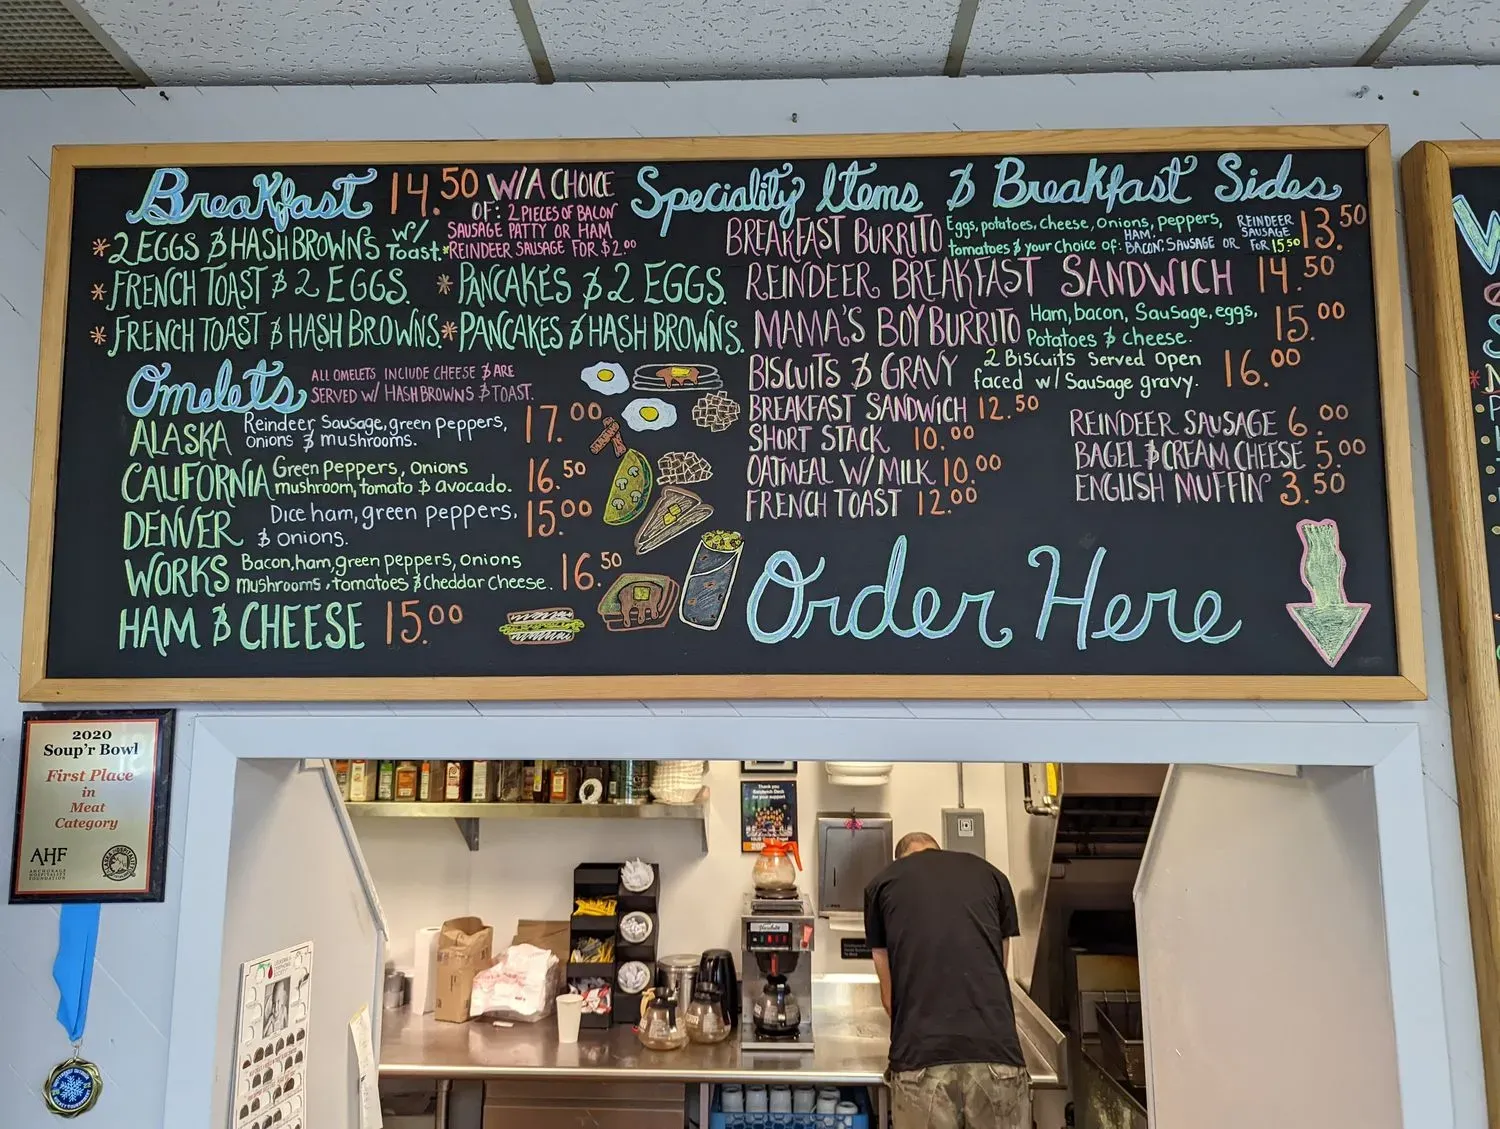 Breakfast 14.50 W/A CHOICE
OF: 2 PIECES OF BACON
SAUSAGE PATTY OR HAM
*REINDEER SAUSAGE FOR $2.00
* 2 EGGS & HASHBROWNS W/ Toast.
* FRENCH TOAST & 2 EGGS. * PANCAKES & 2 EGGS.
* FRENCH TOAST & HASH BROWNS. * PANCAKES & HASH BROWNS.
Omelets ALL OMELETS INCLUDE CHEESE & ARE
SERVED W/ HASHBROWNS & TOAST.
ALASKA Reindeer Sausage, green peppers, 17.00
onions & mushrooms.
CALIFORNIA Green peppers, onions 16.50
mushroom, tomato & avocado.
DENVER Dice ham, green peppers, 15.00
& onions.
WORKS Bacon, ham, green peppers, onions 16.50
mushrooms, tomatoes & cheddar cheese.
HAM & CHEESE 15.00
Speciality Items & Breakfast Sides
BREAKFAST BURRITO Eggs, potatoes, cheese, onions, peppers, REINDEER SAUSAGE FOR 15.50 13.50
tomatoes & your choice of: HAM, BACON, SAUSAGE OR
REINDEER BREAKFAST SANDWICH 14.50
MAMA'S BOY BURRITO Ham, bacon, Sausage, eggs, 15.00
Potatoes & cheese.
BISCUITS & GRAVY 2 Biscuits Served Open 16.00
faced w/ Sausage gravy.
BREAKFAST SANDWICH 12.50
SHORT STACK 10.00
OATMEAL W/ MILK 10.00
FRENCH TOAST 12.00
REINDEER SAUSAGE 6.00
BAGEL & CREAM CHEESE 5.00
ENGLISH MUFFIN 3.50
Order Here
2020
Soup'r Bowl
First Place
in
Meat
Category
AHF
ANCHORAGE
HOSPITALITY
FOUNDATION
Thank you
for your support